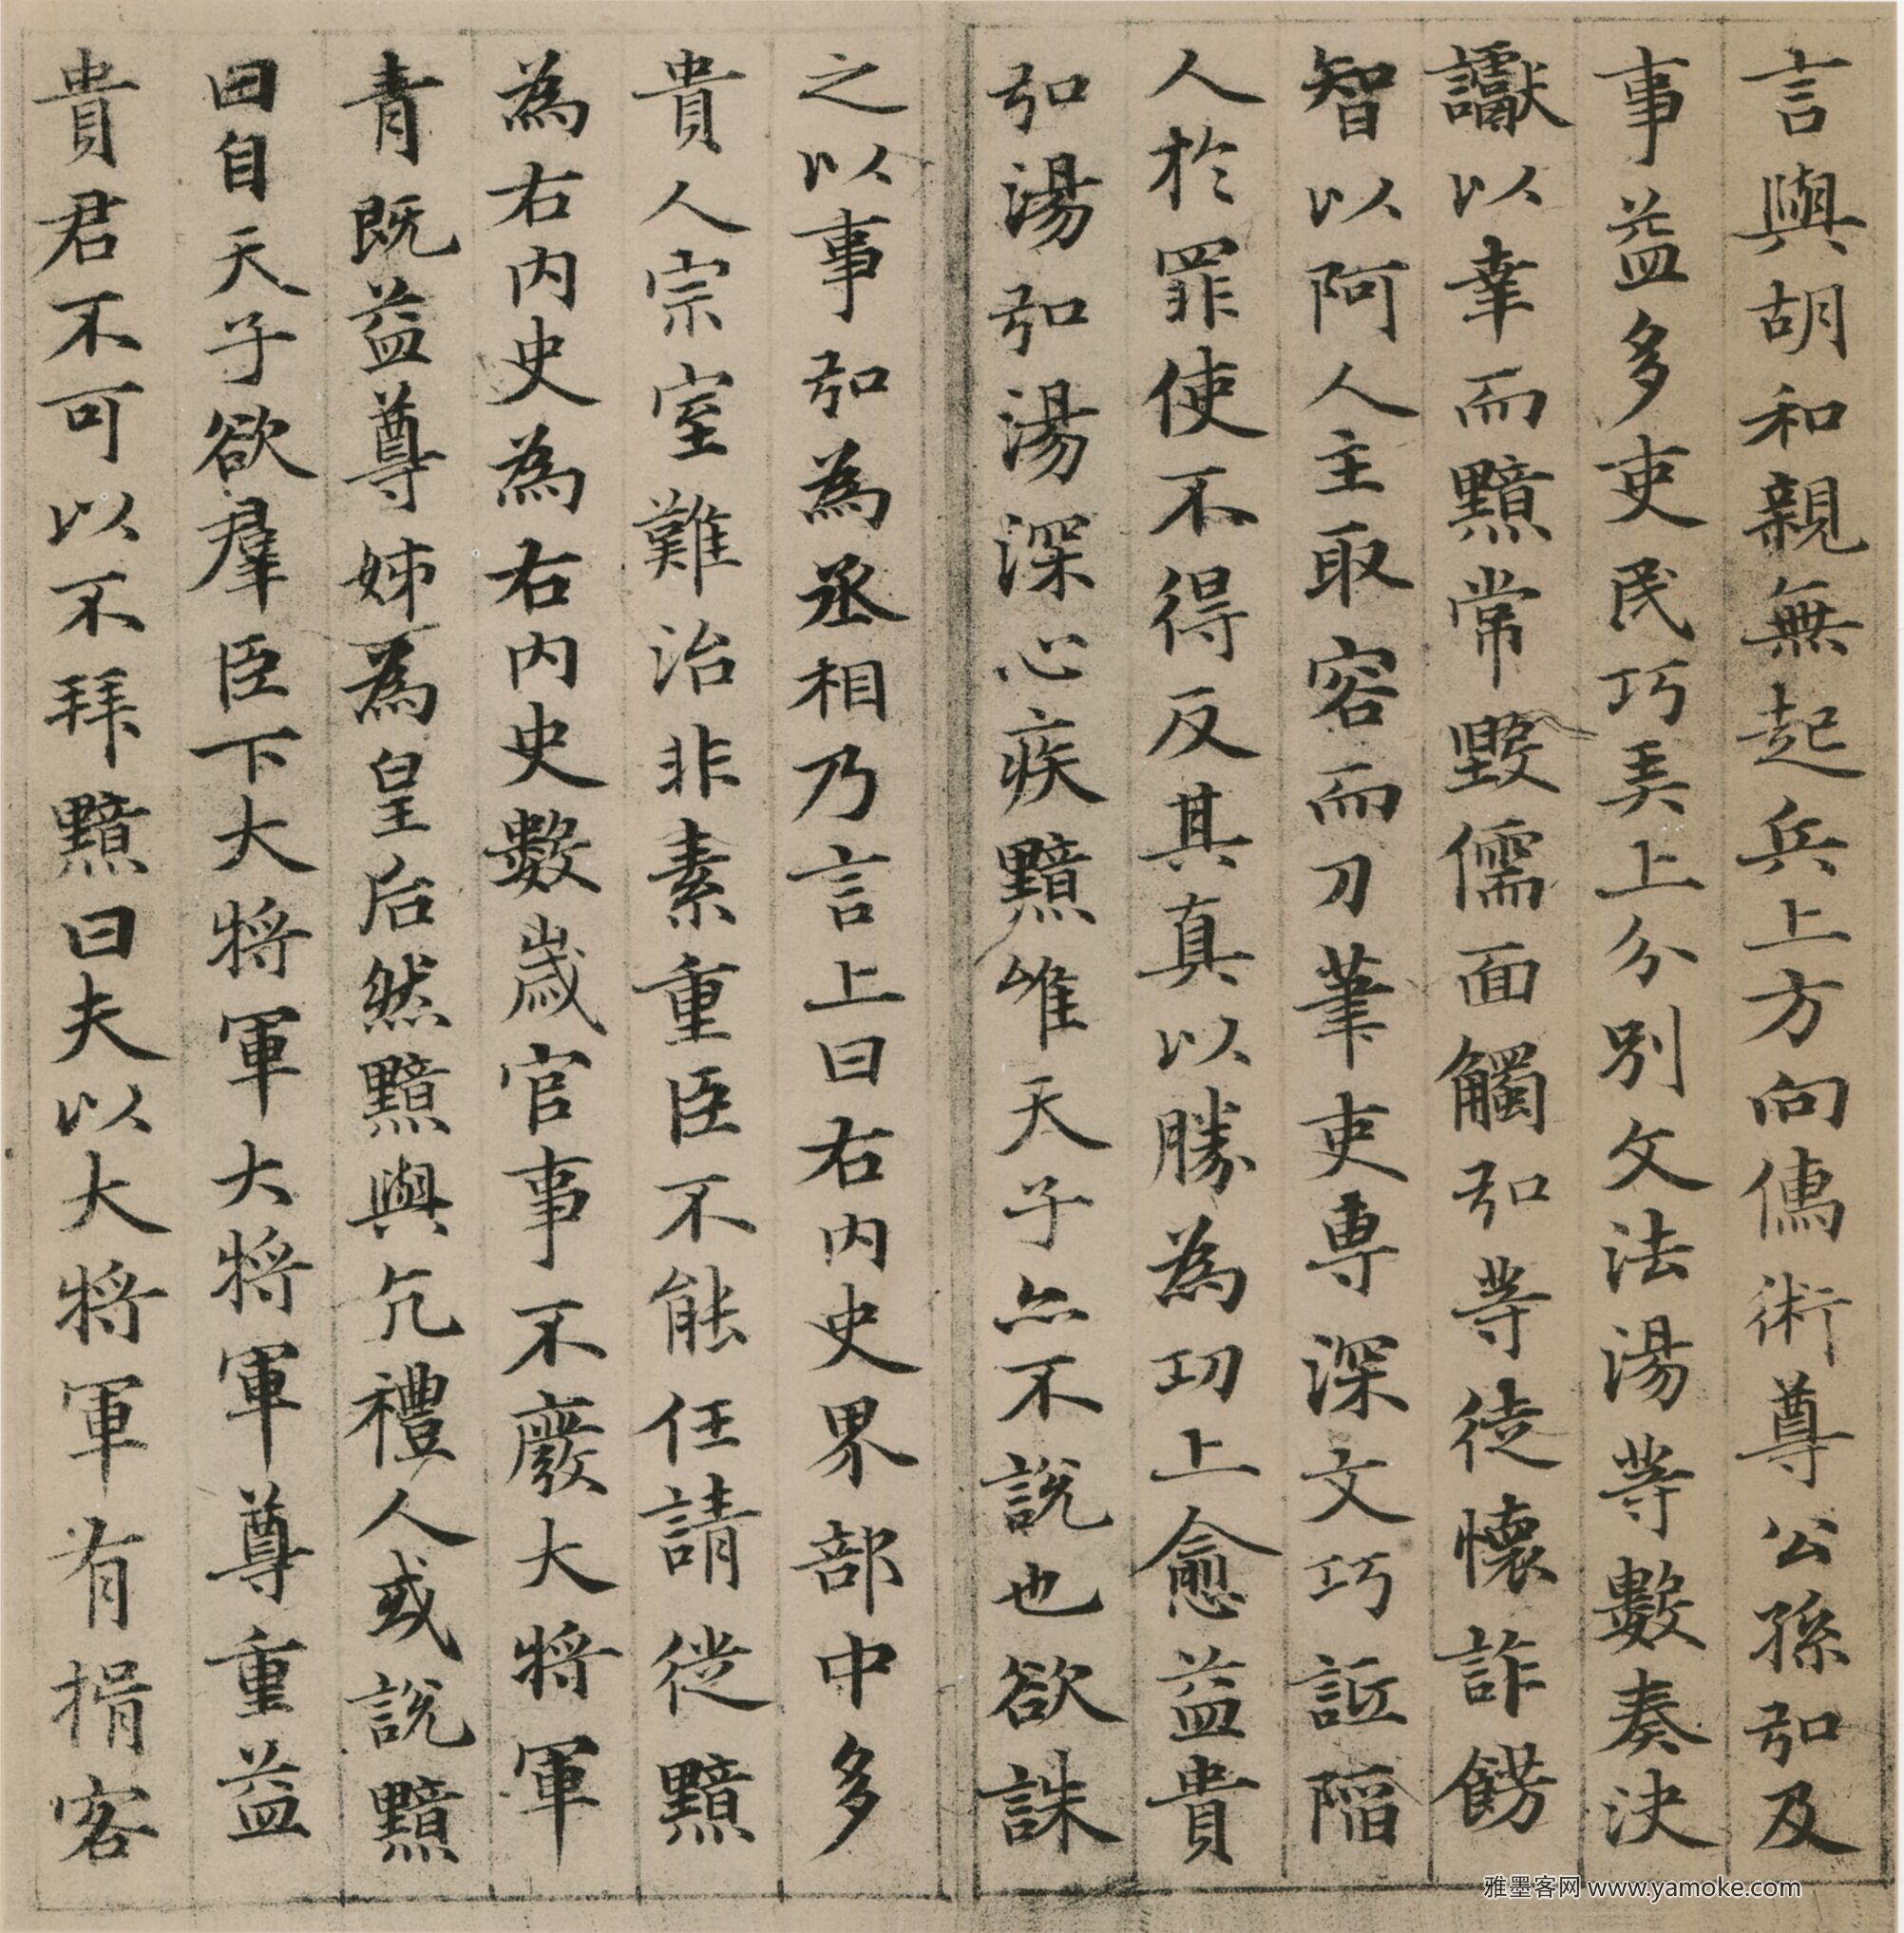 言與胡和親無起兵上方向儁術尊公孫弘及
事益多吏民巧弄上分別文法湯等數奏決
讞以幸而黯常毀儒面觸弘等徒懷詐飾
智以阿人主取容而刀筆吏專深文巧詆陷
人於罪使不得反其真以勝為功上愈益貴
弘湯弘湯深心疾黯唯天子亦不說也欲誅
之以事弘為丞相乃言上曰右內史界部中多
貴人宗室難治非素重臣不能任請徙黯
為右內史為右內史數歲官事不廢大將軍
青既益尊姊為皇后然黯與亢禮人或說黯
曰自天子欲群臣下大將軍大將軍尊重益
貴君不可以不拜黯曰夫以大將軍有揖客
雅墨客网 www.yamoke.com